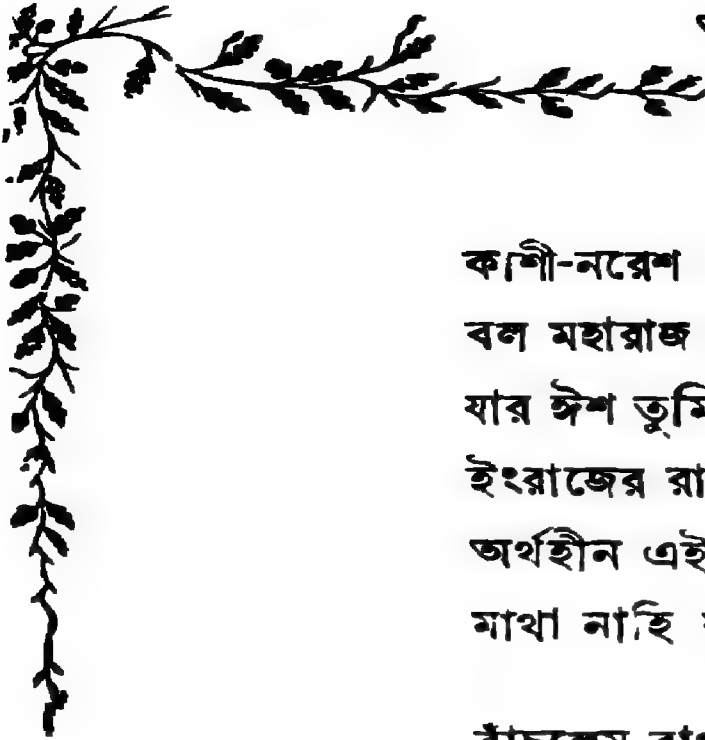 কাশী-নরেশ
বল মহারাজ
যার ঈশ তুমি
ইংরাজের
অর্থহীন এই
মাথা নাহি